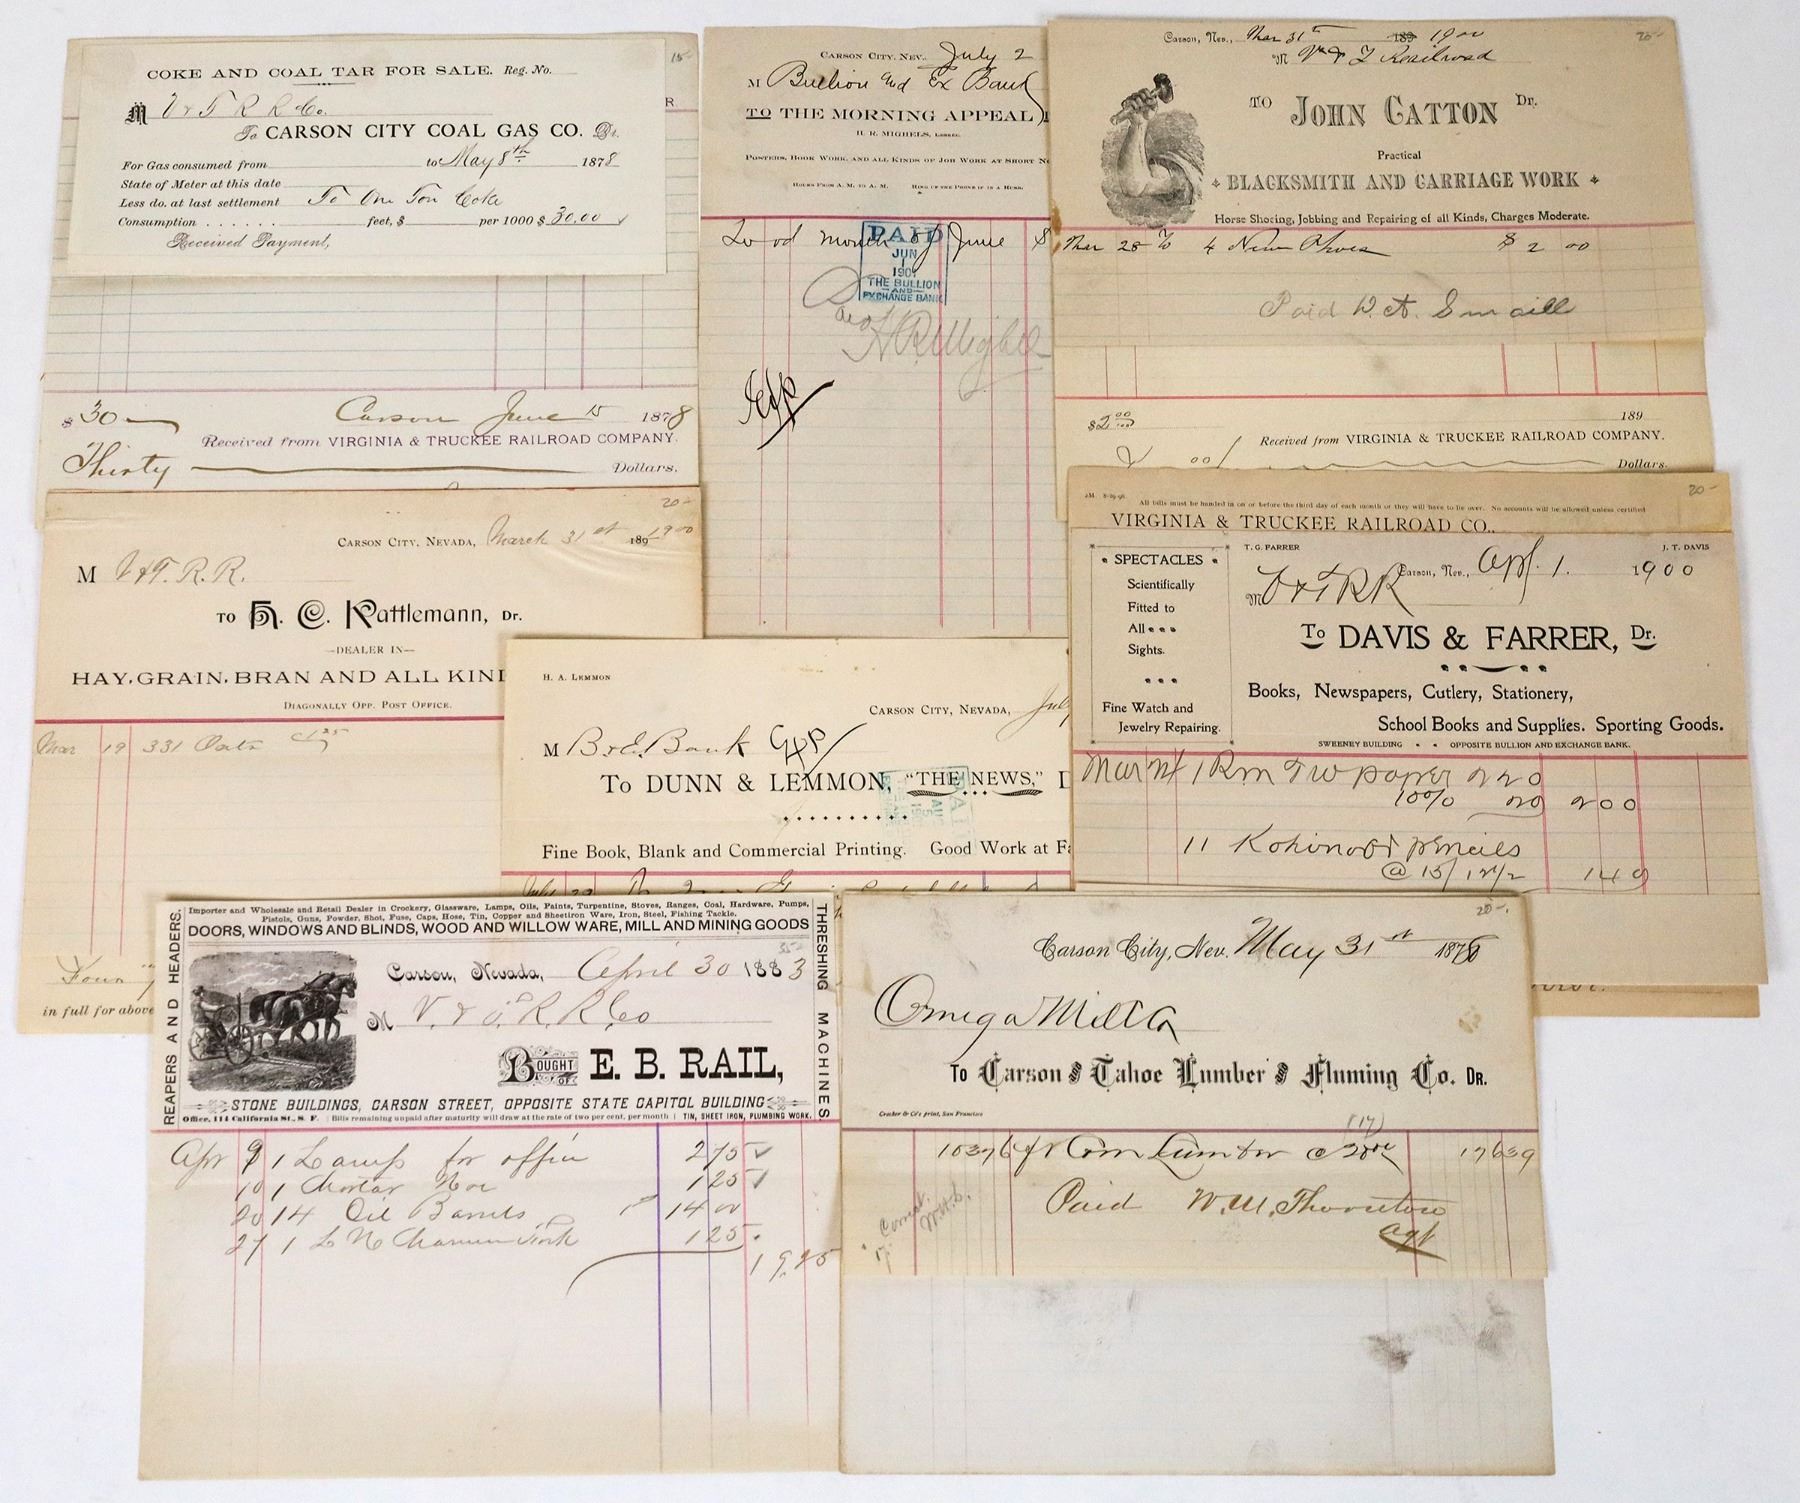 15-
COKE AND COAL TAR FOR SALE. Reg. No.
M V & T R R Co.
To CARSON CITY COAL GAS CO. Dr.
For Gas consumed from to May 8th 1878
State of Meter at this date
Less do. at last settlement To One Ton Coke
Consumption . . . . . . feet, $ per 1000 $ 30.00
Received Payment,
R
$ 30 Carson June 15 1878
Received from VIRGINIA & TRUCKEE RAILROAD COMPANY.
Thirty Dollars.
CARSON CITY, NEV. July 2
M Bullion and Ex Bank
TO THE MORNING APPEAL
H. R. MIGHELS, LESSEE.
POSTERS, BOOK WORK, AND ALL KINDS OF JOB WORK AT SHORT
To ad month of June $
PAID
JUN
1
190
THE BULLION
AND
EXCHANGE BANK
H R Mighels
Carson, Nev., Mar 31st 189 1900
20-
M V & T Railroad
TO JOHN CATTON Dr.
Practical
BLACKSMITH AND CARRIAGE WORK
Horse Shoeing, Jobbing and Repairing of all Kinds, Charges Moderate.
Mar 28 To 4 New Shoes $ 2 00
Paid W. A. Smaill
$2.00 189
Received from VIRGINIA & TRUCKEE RAILROAD COMPANY.
00/ Dollars.
20-
CARSON CITY, NEVADA, March 31st 189 1900
M V & T. R. R.
TO H. C. Kattlemann, Dr.
—DEALER IN—
HAY, GRAIN, BRAN AND ALL KIN
DIAGONALLY OPP. POST OFFICE.
Mar 19 331 Oats @ 1.25
Four
in full for above
H. A. LEMMON
CARSON CITY, NEVADA, July
M B & E. Bank
TO DUNN & LEMMON, "THE NEWS," D
Fine Book, Blank and Commercial Printing. Good Work at Fa
20-
All bills must be handed in on or before the third day of each month or they will have to lie over. No accounts will be allowed unless certified
VIRGINIA & TRUCKEE RAILROAD CO.,
SPECTACLES
Scientifically
Fitted to
All
Sights.
Fine Watch and
Jewelry Repairing.
T. G. FARRER J. T. DAVIS
Carson, Nev., Apl. 1. 1900
M V & T R R
To DAVIS & FARRER, Dr.
Books, Newspapers, Cutlery, Stationery,
School Books and Supplies. Sporting Goods.
SWEENEY BUILDING OPPOSITE BULLION AND EXCHANGE BANK.
Mar 1 Rm T W paper 2 20
10% 20 2 00
11 Kohinoor pencils
@ 15/ 12 1/2 1 40
REAPERS AND HEADERS.
THRESHING MACHINES
Importer and Wholesale and Retail Dealer in Crockery, Glassware, Lamps, Oils, Paints, Turpentine, Stoves, Ranges, Coal, Hardware, Pumps,
Pistols, Guns, Powder, Shot, Fuse, Caps, Hose, Tin, Copper and Sheetiron Ware, Iron, Steel, Fishing Tackle.
DOORS, WINDOWS AND BLINDS, WOOD AND WILLOW WARE, MILL AND MINING GOODS
35-
Carson, Nevada, April 30 1883
M V. & T. R. R. Co
BOUGHT OF E. B. RAIL,
STONE BUILDINGS, CARSON STREET, OPPOSITE STATE CAPITOL BUILDING
Office, 114 California St., S. F. Bills remaining unpaid after maturity will draw at the rate of two per cent. per month TIN, SHEET IRON, PLUMBING WORK.
Apr 9 1 Lamp for office 2 75
10 1 Mortar Hoe 1 25
20 14 Oil Barrels 14 00
27 1 1 25
19.25
20-
Carson City, Nev. May 31st 1878
Omega Mill Co
To Carson & Tahoe Lumber & Fluming Co. DR.
Crocker & Co's print, San Francisco
(17)
10376 ft Com Lumber @ 176 39
Paid W. M. Thornton
Agt
Correct.
W.H.S.